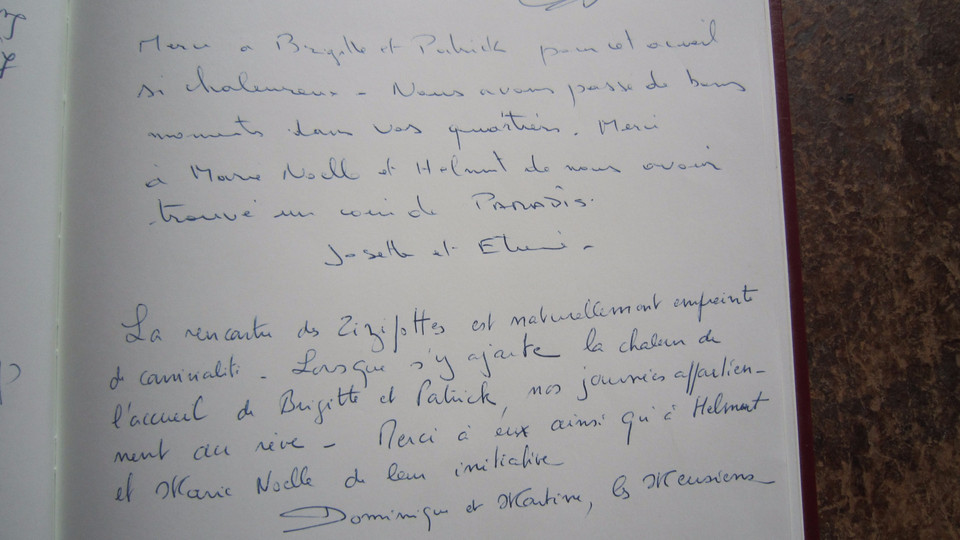 Merci à Brigitte et Patrick pour cet accueil
si chaleureux - Nous avons passé de bons
moments dans vos quartiers. Merci
à Marie Noelle et Helmut de nous avoir
trouvé un coin de PARADIS.
Josette et -
La rencontre des Zizifottes est naturellement empreinte
de convivialité - Lorsque s'y ajoute la chaleur de
l'accueil de Brigitte et Patrick, nos journées appartien-
nent au rêve - Merci à eux ainsi qu'à Helmut
et Marie Noelle de leur initiative
Dominique et Martine, les Meusiens